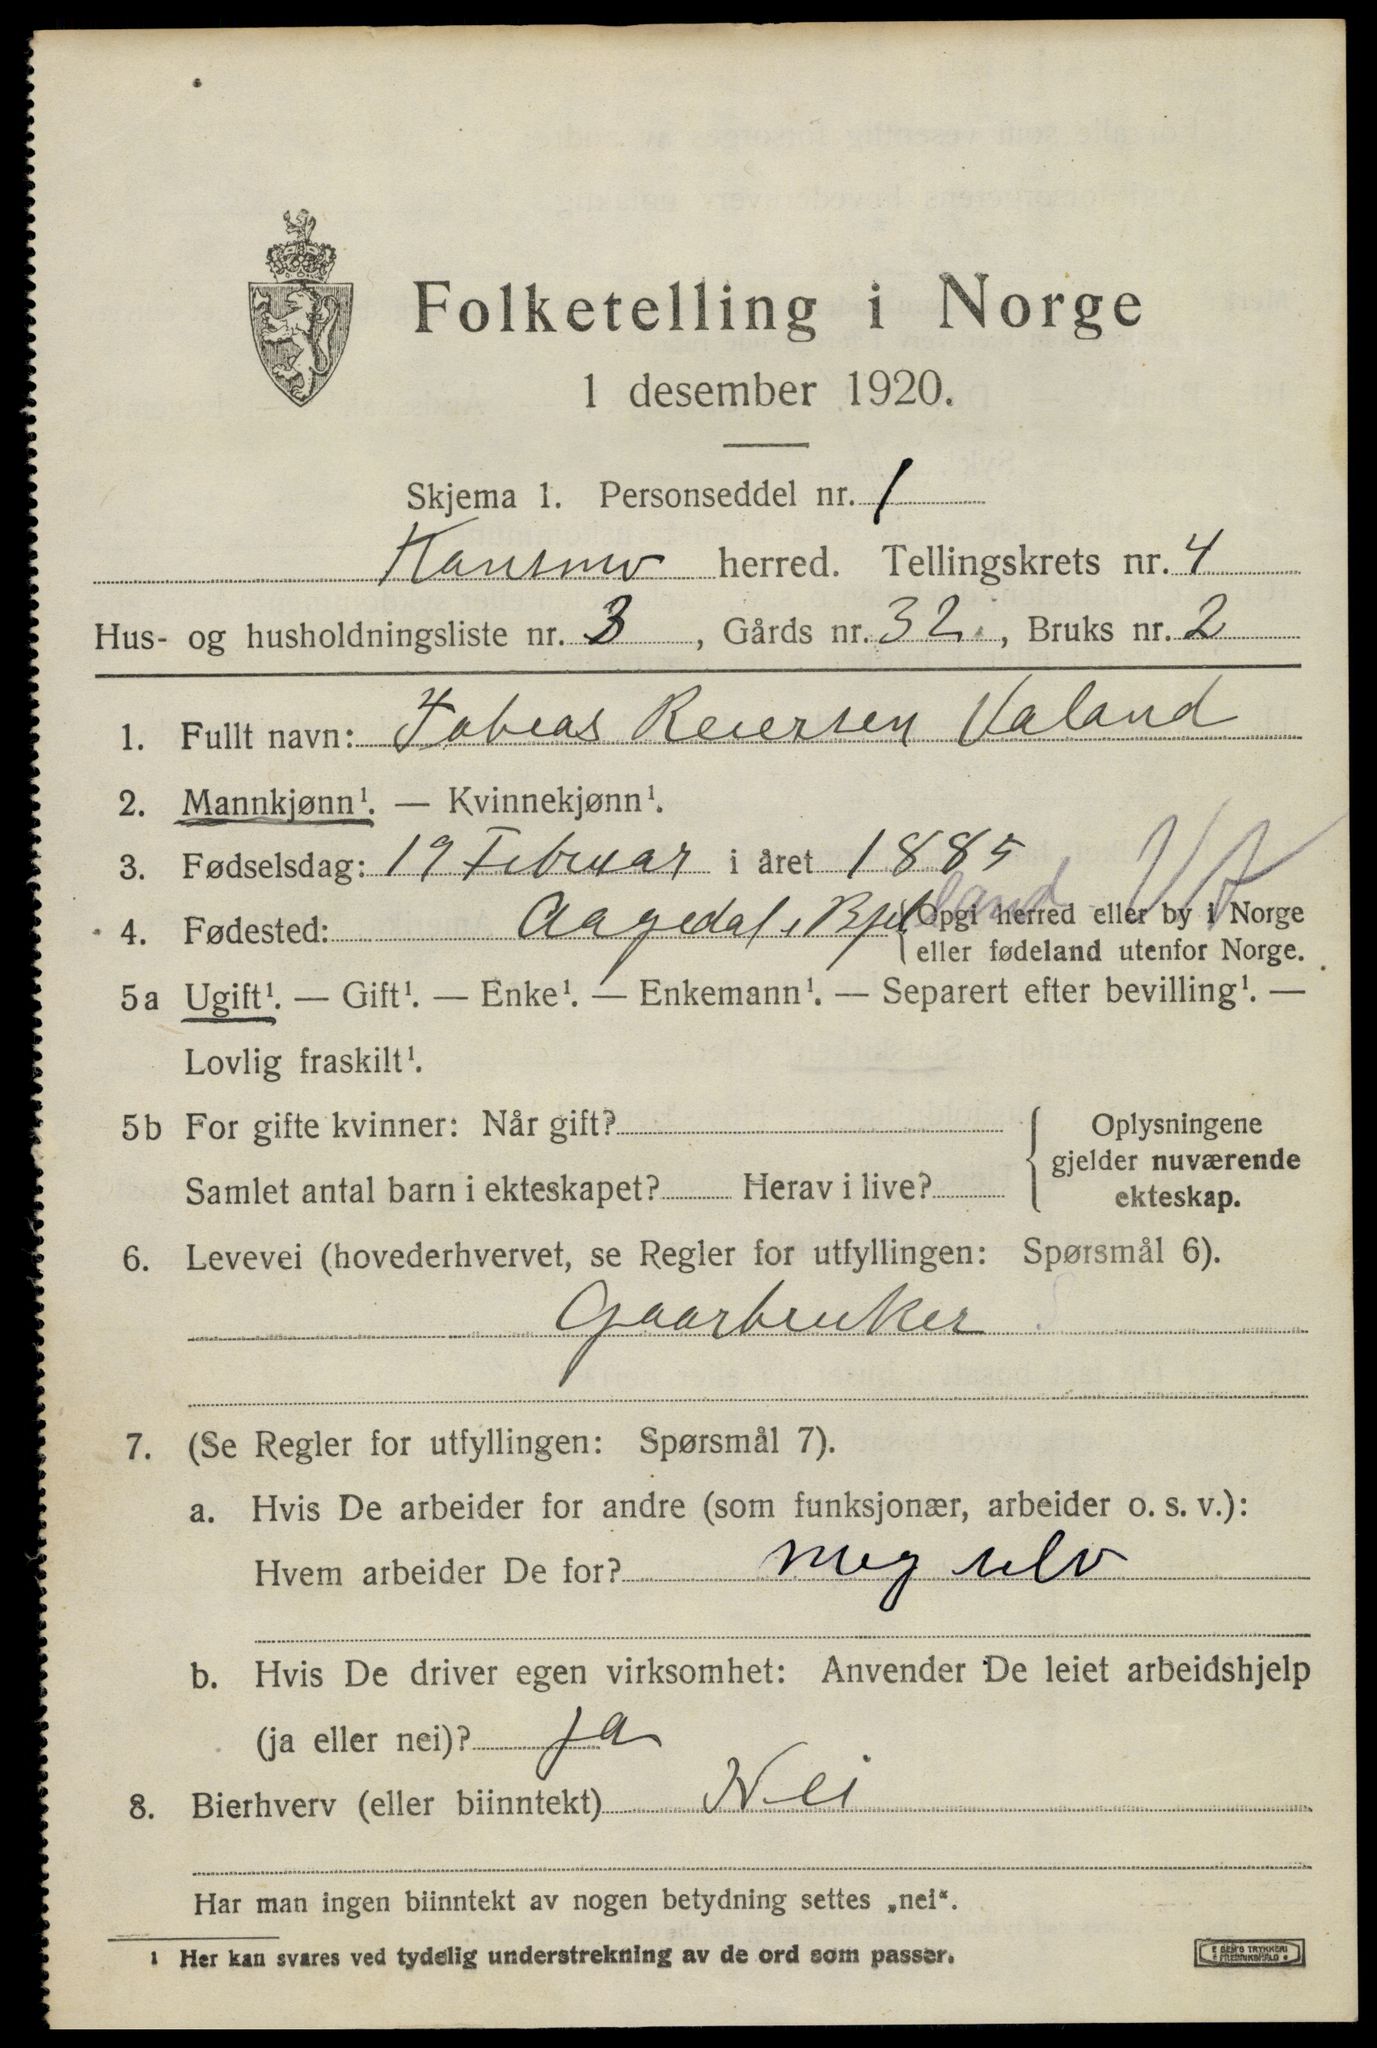 Folketelling i Norge
1 desember 1920.
Skjema 1. Personseddel nr. 1
herred. Tellingskrets nr. 4
Hus- og husholdningsliste nr. 3, Gårds nr. 32, Bruks nr. 2
1. Fullt navn: Tobias Reiersen Valand
2. Mannkjønn¹. — Kvinnekjønn¹.
3. Fødselsdag: 19 Februar i året 1885
4. Fødested: Aagedal i Bjelland VA {Opgi herred eller by i Norge
eller fødeland utenfor Norge.
5a Ugift¹. — Gift¹. — Enke¹. — Enkemann¹. — Separert efter bevilling¹. —
Lovlig fraskilt¹.
5b For gifte kvinner: Når gift? { Oplysningene
gjelder nuværende
Samlet antal barn i ekteskapet? Herav i live? ekteskap.
6. Levevei (hovederhvervet, se Regler for utfyllingen: Spørsmål 6).
Gaarbruker
7. (Se Regler for utfyllingen: Spørsmål 7).
a. Hvis De arbeider for andre (som funksjonær, arbeider o. s. v.):
Hvem arbeider De for? meg selv
b. Hvis De driver egen virksomhet: Anvender De leiet arbeidshjelp
(ja eller nei)? ja
8. Bierhverv (eller biinntekt) Nei
Har man ingen biinntekt av nogen betydning settes „nei“.
1 Her kan svares ved tydelig understrekning av de ord som passer.